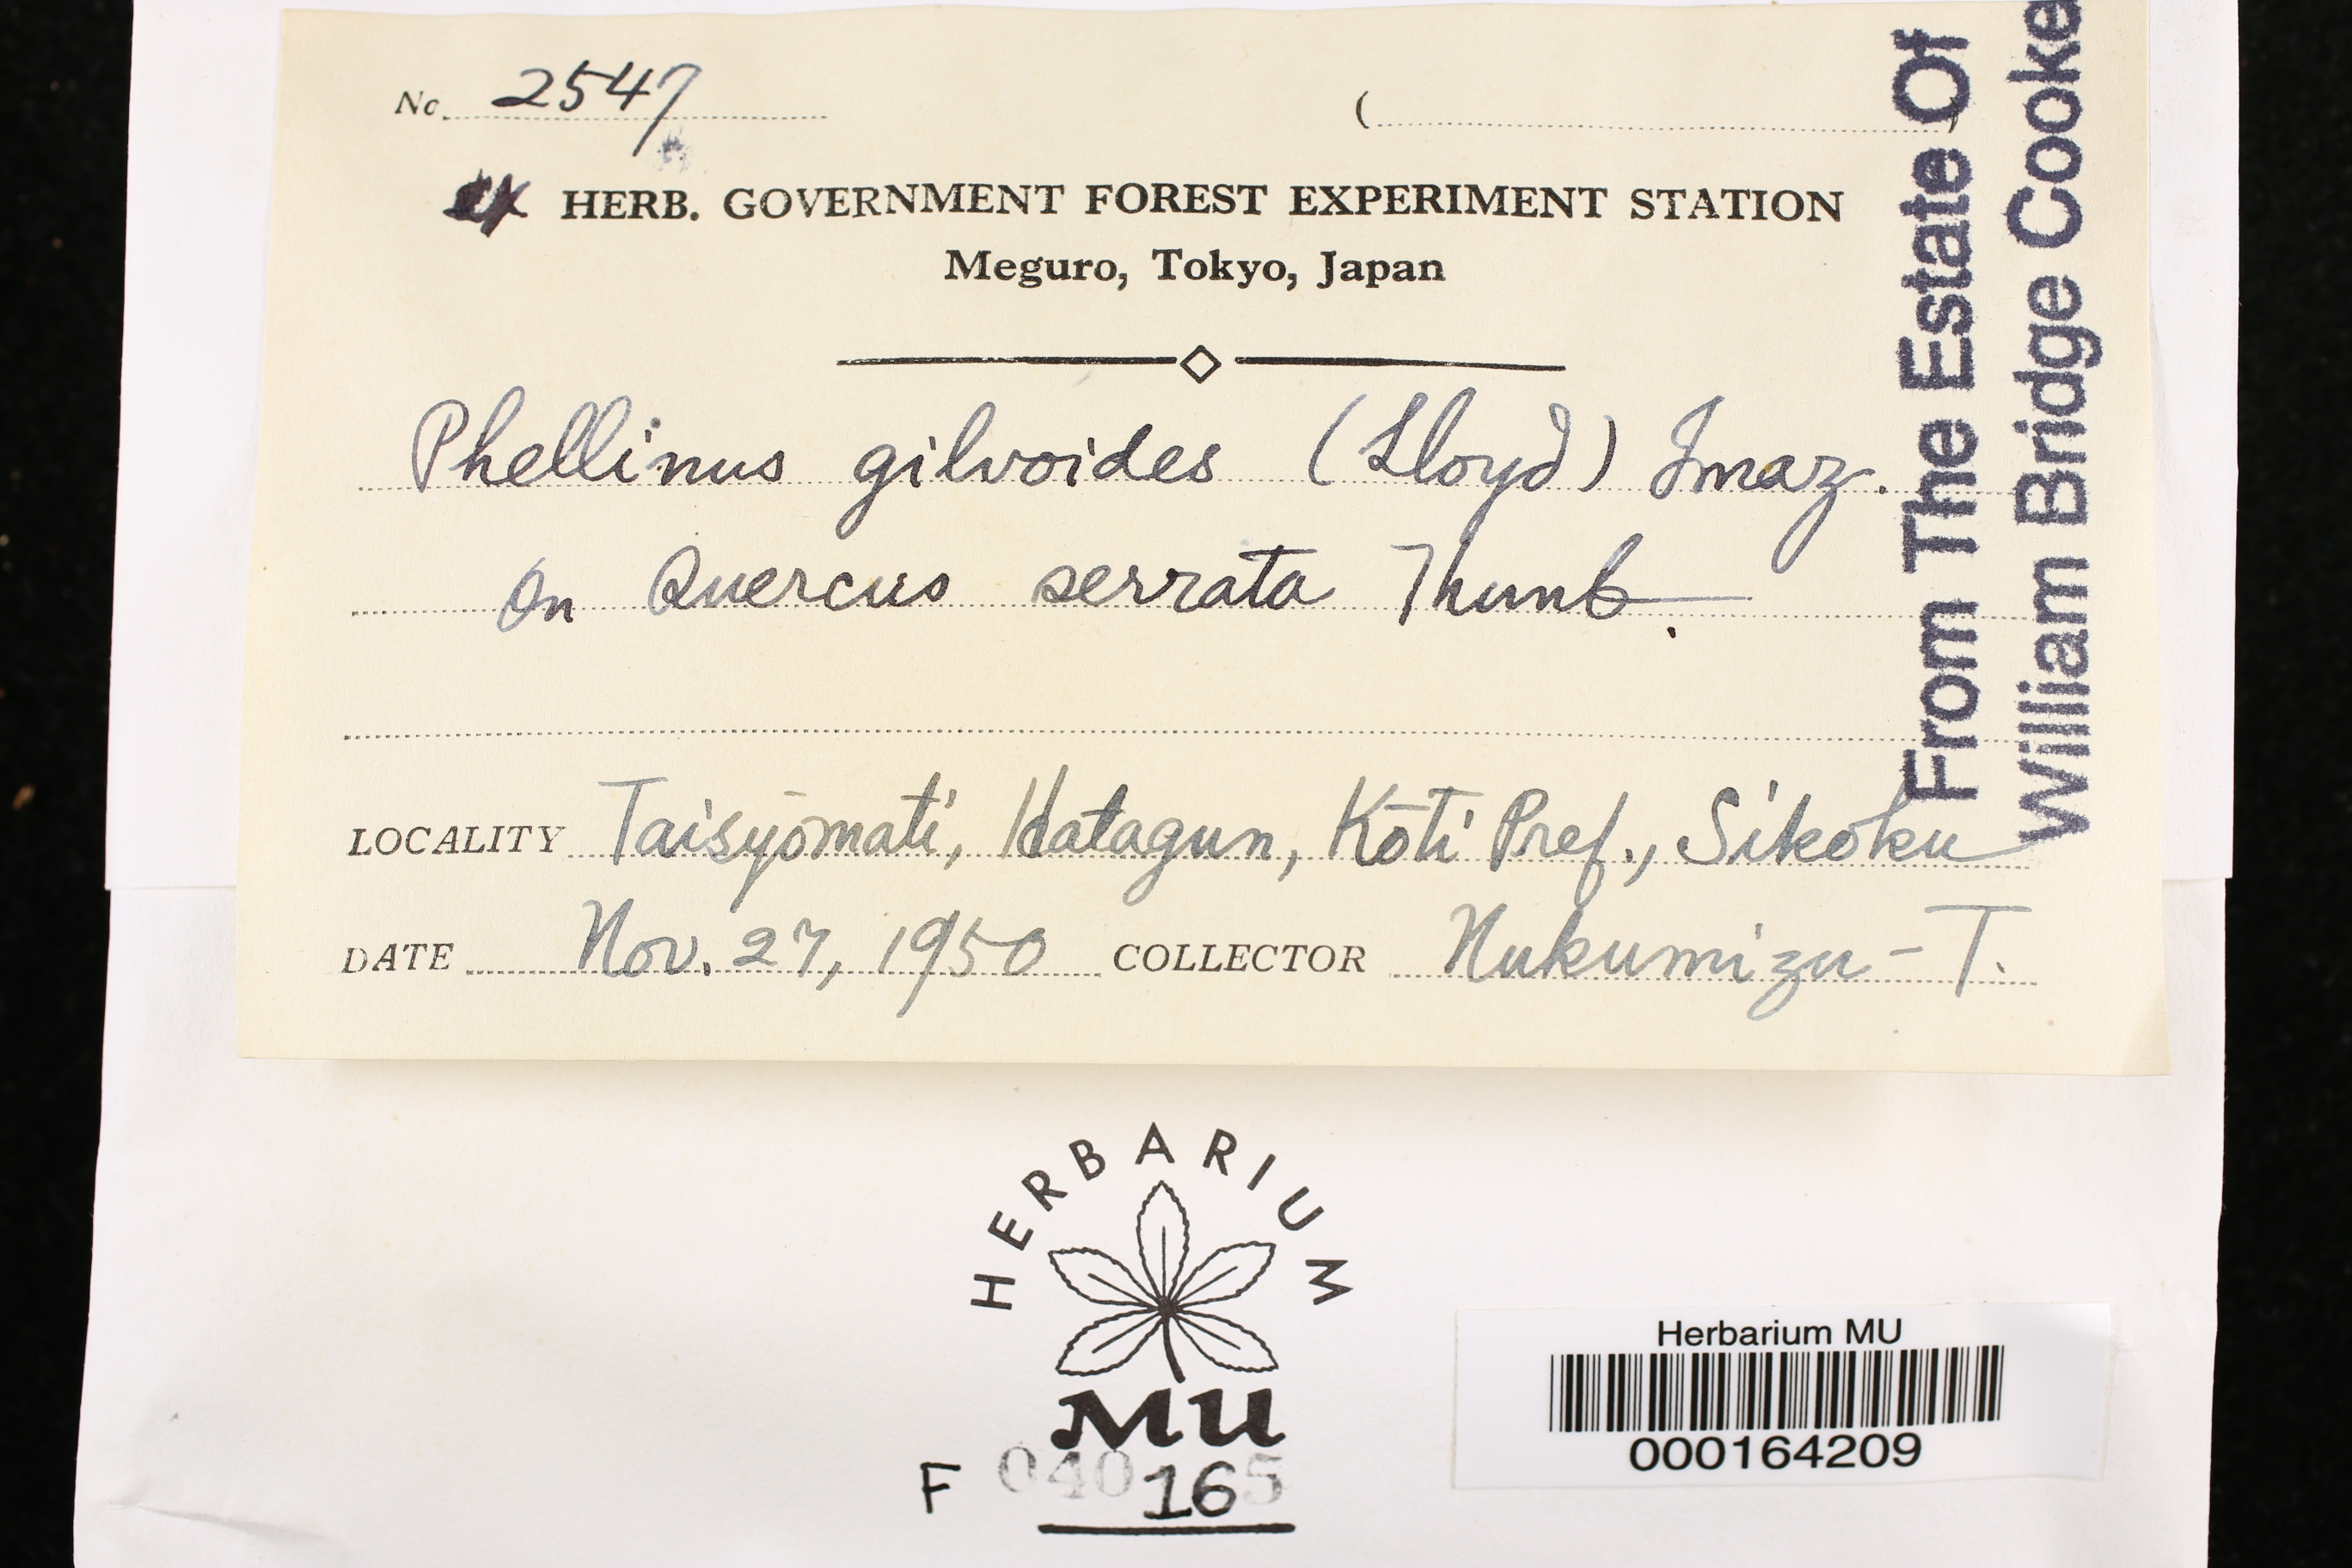 No. 2547 ( )
ex HERB. GOVERNMENT FOREST EXPERIMENT STATION
Meguro, Tokyo, Japan
Phellinus gilvoides (Lloyd) Imaz.
On Quercus serrata Thunb.
LOCALITY Taisyōmati, Hatagun, Kōti Pref., Sikoku
DATE Nov. 27, 1950 COLLECTOR Nukumizu-T.
From The Estate Of
William Bridge Cooke
HERBARIUM
MU
F 040165
Herbarium MU
000164209